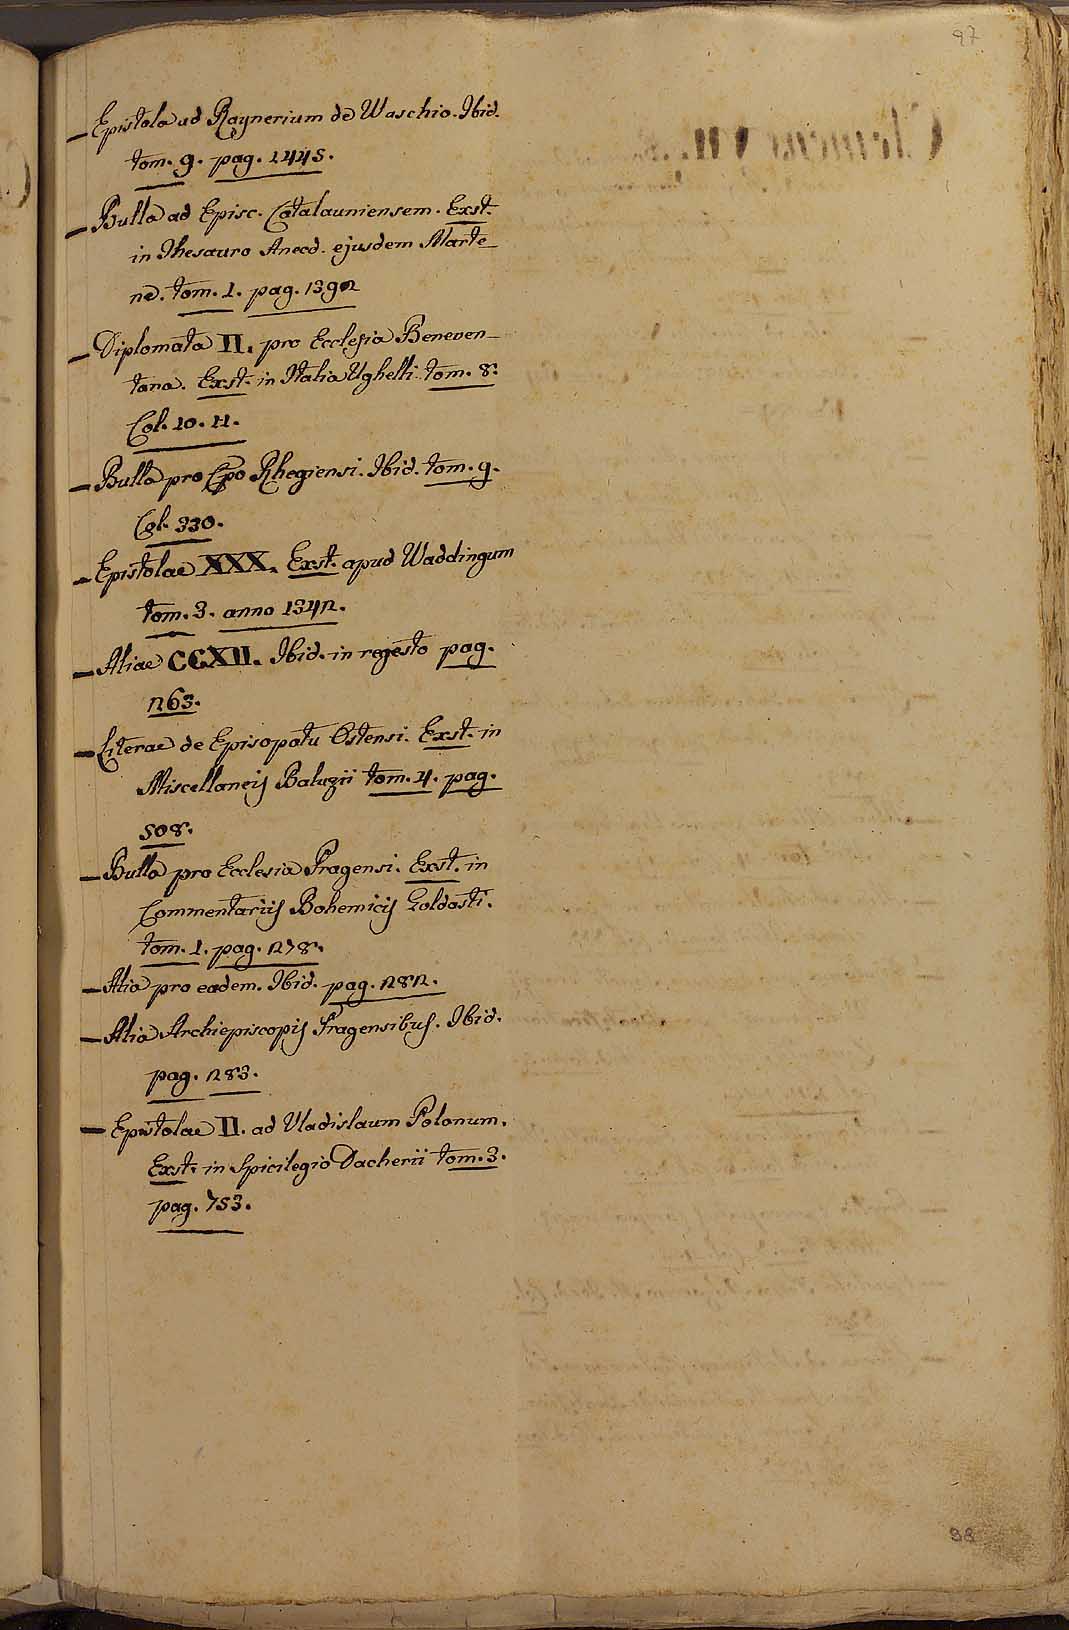 97
– Epistola ad Raynerium de Waschio. Ibid.
tom. 9. pag. 1445.
– Bulla ad Episc. Catalauniensem. Exst.
in Thesauro Anecd. ejusdem Marte–
ne. tom. 1. pag. 1392
– Diplomata II. pro Ecclesia Beneven–
tana. Exst. in Italia Ughelli tom. 8.
Col. 10. 11.
– Bulla pro Epo Rhegiensi. Ibid. tom. 9.
Col. 330.
– Epistolae XXX. Exst. apud Waddingum
tom. 3. anno 1342.
– Aliae CCXII. Ibid. in regesto pag.
263.
– Literae de Episopatu Ostensi. Exst. in
Miscellaneis Baluzii tom. 4. pag.
508.
– Bulla pro Ecclesia Pragensi. Exst. in
Commentariis Bohemicis Goldasti.
tom. 1. pag. 278.
– Alia pro eadem. Ibid. pag. 282.
– Alia Archiepiscopis Pragensibus. Ibid.
pag. 283.
– Epistolae II. ad Uladislaum Polonum.
Exst. in Spicilegio Dacherii tom. 3.
pag. 753.
98